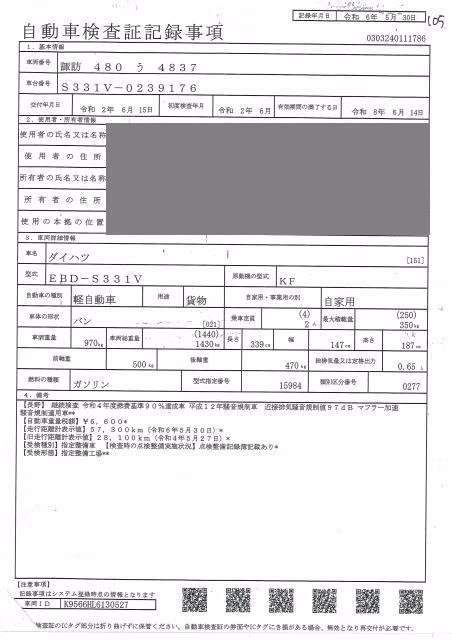 記録年月日 令和 6年 5月 30日
105
自動車検査証記録事項
0303240111786
1. 基本情報
車両番号 諏訪 480 う 4837
車台番号 S331V-0239176
交付年月日 令和 2年 6月 15日 初度検査年月 令和 2年 6月 有効期間の満了する日 令和 8年 6月 14日
2. 使用者・所有者情報
使用者の氏名又は名称
使用者の住所
所有者の氏名又は名称
所有者の住所
使用の本拠の位置
3. 車両詳細情報
車名 ダイハツ [151]
型式 EBD-S331V 原動機の型式 KF
自動車の種別 軽自動車 用途 貨物 自家用・事業用の別 自家用
車体の形状 バン [021] 乗車定員 (4) 2人 最大積載量 (250) 350kg
車両重量 970kg 車両総重量 (1440) 1430kg 長さ 339cm 幅 147cm 高さ 187cm
前軸重 500kg 後軸重 470kg 総排気量又は定格出力 0.65 L
燃料の種類 ガソリン 型式指定番号 15984 類別区分番号 0277
4. 備考
【長野】 継続検査 令和4年度燃費基準90%達成車 平成12年騒音規制車 近接排気騒音規制値97dB マフラー加速
騒音規制適用車**
【自動車重量税額】¥6,600*
【走行距離計表示値】57,300km（令和6年5月30日）*
【旧走行距離計表示値】28,100km（令和4年5月27日）*
【受検種別】指定整備車 【検査時の点検整備実施状況】点検整備記録簿記載あり*
【受検形態】指定整備工場**
【注意事項】
記録事項はシステム登録時点の情報となります
車両ID K9566HL6130527
検査証のICタグ部分は折り曲げずに保管ください。自動車検査証の券面やICタグにき損がある場合、無効となり再交付が必要です。